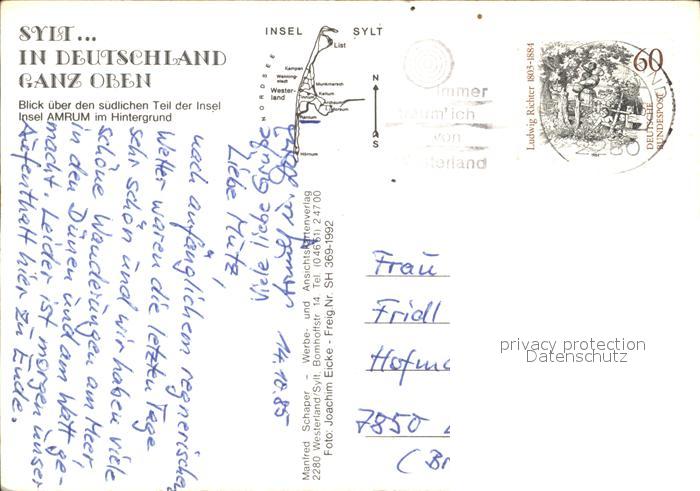 SYLT...
IN DEUTSCHLAND
GANZ OBEN
Blick über den südlichen Teil der Insel
Insel AMRUM im Hintergrund
INSEL SYLT
NORDSEE
List
Kampen
Westerland
Munkmarsch
Keitum
Rantum
Hörnum
N
S
immer
lich
von
sterland
Ludwig Richter 1803-1884
60
DEUTSCHE
BUNDESPOST
2280
Liebe Mütz,
nach anfänglichem regnerischen
Wetter waren die letzten Tage
sehr schön und wir haben viele
schöne Wanderungen am Meer
in den Dünen und am Watt ge-
macht. Leider ist morgen unser
Aufenthalt hier zu Ende.
Viele liebe Grüße
14.10.85
Manfred Schaper – Werbe- und Ansichtskartenverlag
2280 Westerland/Sylt, Bomhoffstr. 14 Tel. (04651) 24700
Foto: Joachim Eicke - Freig.Nr. SH 369-1992
Frau
Fridl
Hofma
7850
(Br
privacy protection
Datenschutz